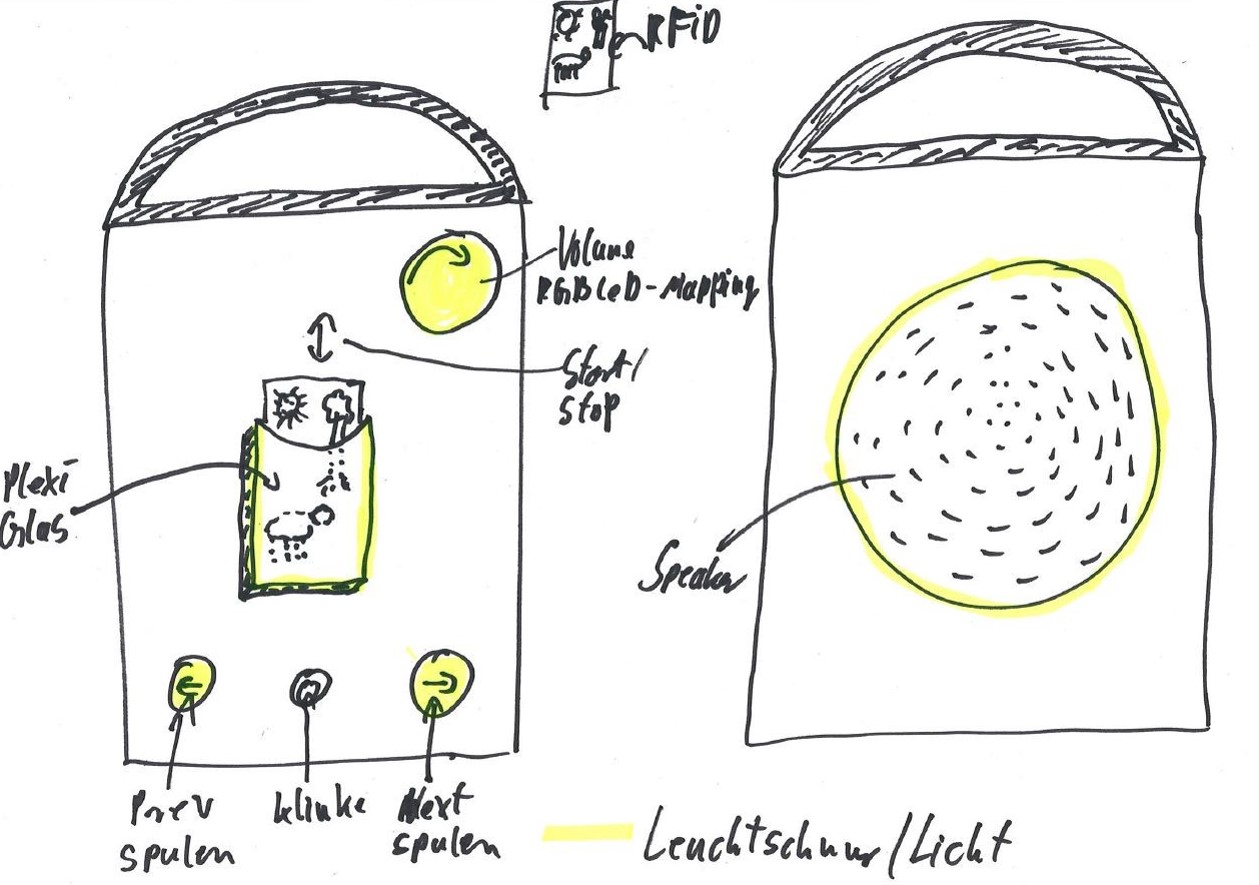 RFiD
Volume
RGB LeD-Mapping
Start/
Stop
Plexi
Glas
Speaker
Prev
spulen
klinke
Next
spulen
Leuchtschnur/Licht